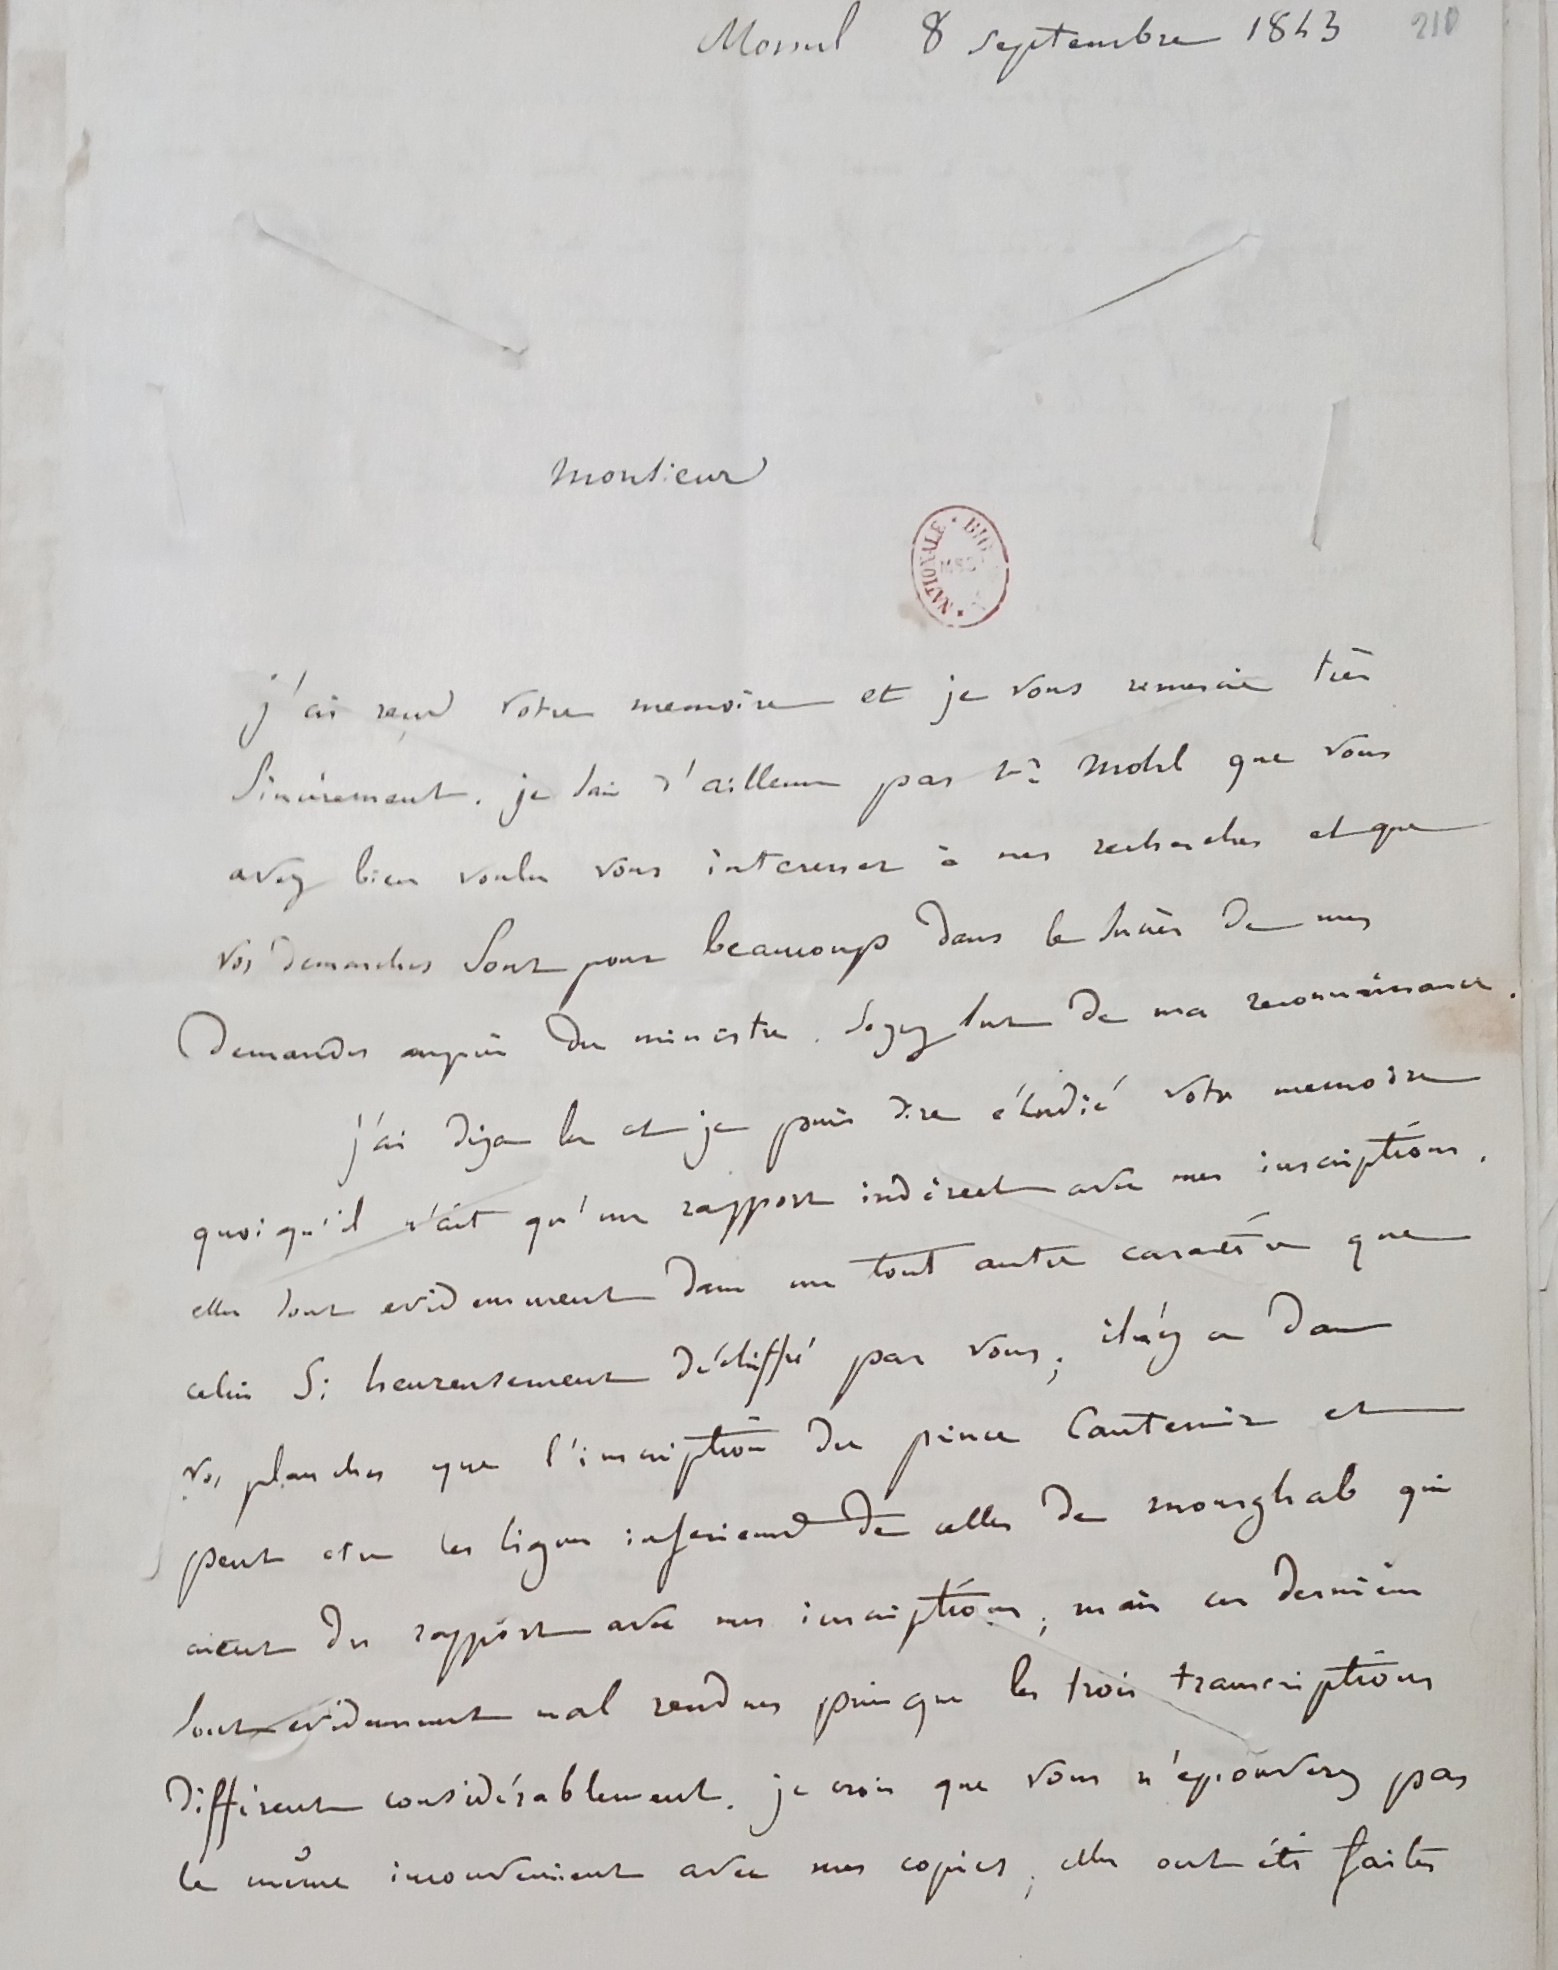 Mossul 8 septembre 1843
210
Monsieur
NATIONALE
MSS
j'ai reçu votre memoire et je vous remercie très
sincèrement. je sais d'ailleurs par Mr Mohl que vous
avez bien voulu vous interesser à mes recherches et que
vos demarches sont pour beaucoup dans le succès de mes
demandes auprès du ministre. Soyez sur de ma reconnaissance.
j'ai deja lu et je puis dire étudié votre memoire
quoiqu'il n'ait qu'un rapport indirect avec mes inscriptions.
elles sont evidemment dans un tout autre caractère que
celui si heureusement déchiffré par vous; il n'y a dans
vos planches que l'inscription du prince Cantemir et
peut etre les lignes inferieures de celles de mourghab qui
aient du rapport avec mes inscriptions; mais ces dernières
sont evidemment mal rendues puisque les trois transcriptions
diffèrent considérablement. je crois que vous n'eprouverez pas
le même inconvenient avec mes copies; elles ont été faites